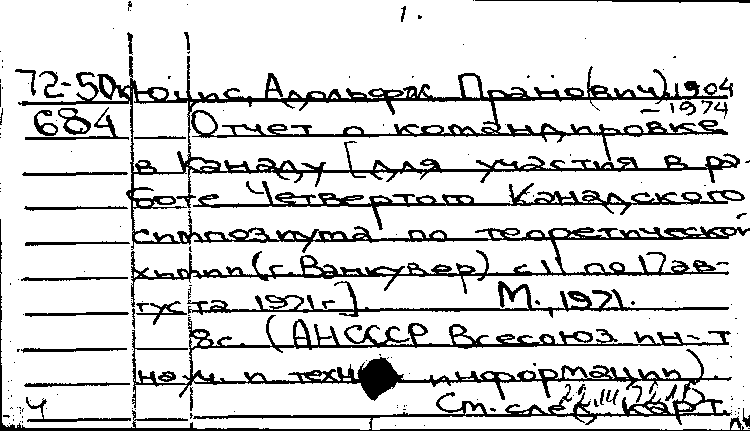 1.
72-50к Юцис, Адольфас Прано(вич). 1904
684 Отчет о командировке – 1974
в Канаду [для участия в ра-
боте Четвертого Канадского
симпозиума по теоретической
химии (г. Ванкувер) с 11 по 17 ав-
густа 1971 г.]. М., 1971.
8с. (АН СССР Всесоюз ин-т
науч. и техн информации).
Ч См. след. карт.